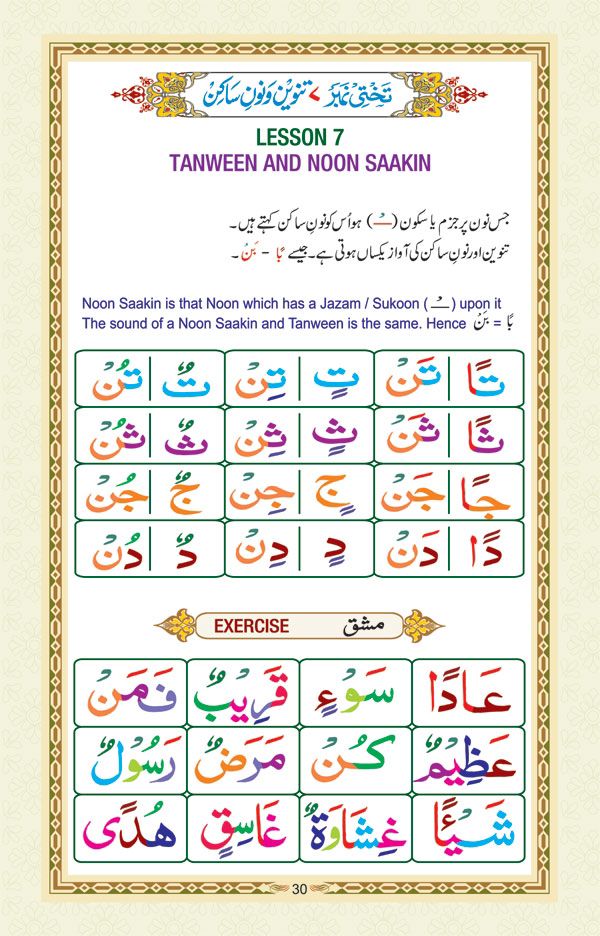 تختی نمبر ۷ تنوین و نونِ ساکِن
LESSON 7
TANWEEN AND NOON SAAKIN
جس نون پر جزم یا سکون (ـْـ) ہو اُس کو نونِ ساکن کہتے ہیں۔
تنوین اور نونِ ساکن کی آواز یکساں ہوتی ہے۔ جیسے بًا - بَنْ ۔
Noon Saakin is that Noon which has a Jazam / Sukoon (ـْـ) upon it
The sound of a Noon Saakin and Tanween is the same. Hence بَنْ = بًا
تًا تَنْ تٍ تِنْ تٌ تُنْ
ثًا ثَنْ ثٍ ثِنْ ثٌ ثُنْ
جًا جَنْ جٍ جِنْ جٌ جُنْ
دًا دَنْ دٍ دِنْ دٌ دُنْ
EXERCISE مشق
عَادًا سَوْءٍ قَرِيْبٌ فَمَنْ
عَظِيْمٌ كُنْ مَرَضٌ رَسُوْلٌ
شَيْئًا غِشَاوَةٌ غَاسِقٍ هُدًى
30